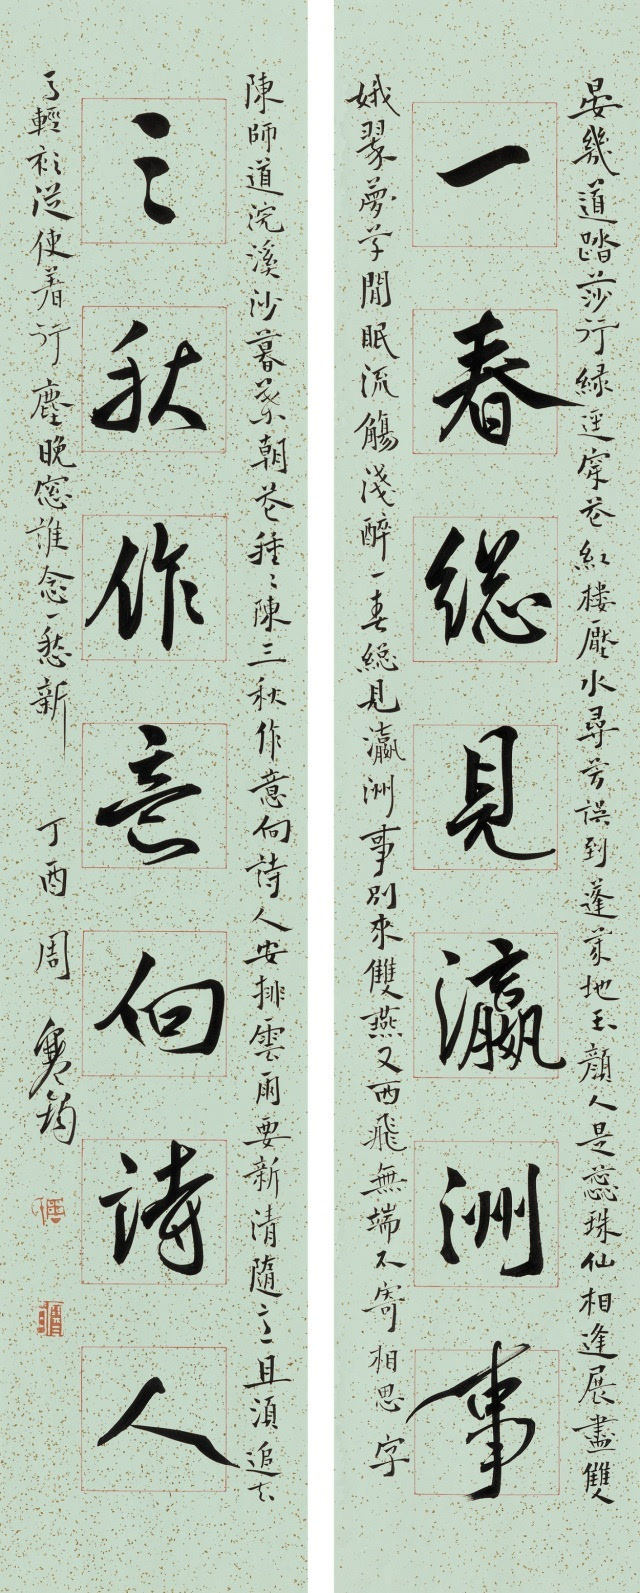 晏幾道踏莎行綠逕穿花紅樓壓水尋芳誤到蓬萊地玉顔人是蕊珠仙相逢展盡雙
一春総見瀛洲事
娥翠夢草閒眠流觴淺醉一春総見瀛洲事別來雙燕又西飛無端不寄相思字
陳師道浣溪沙暮葉朝花種〻陳三秋作意向詩人安排雲雨要新清隨意且須追去
三秋作意向詩人
馬輕衫從使着行塵晚窓誰念一愁新 丁酉 周